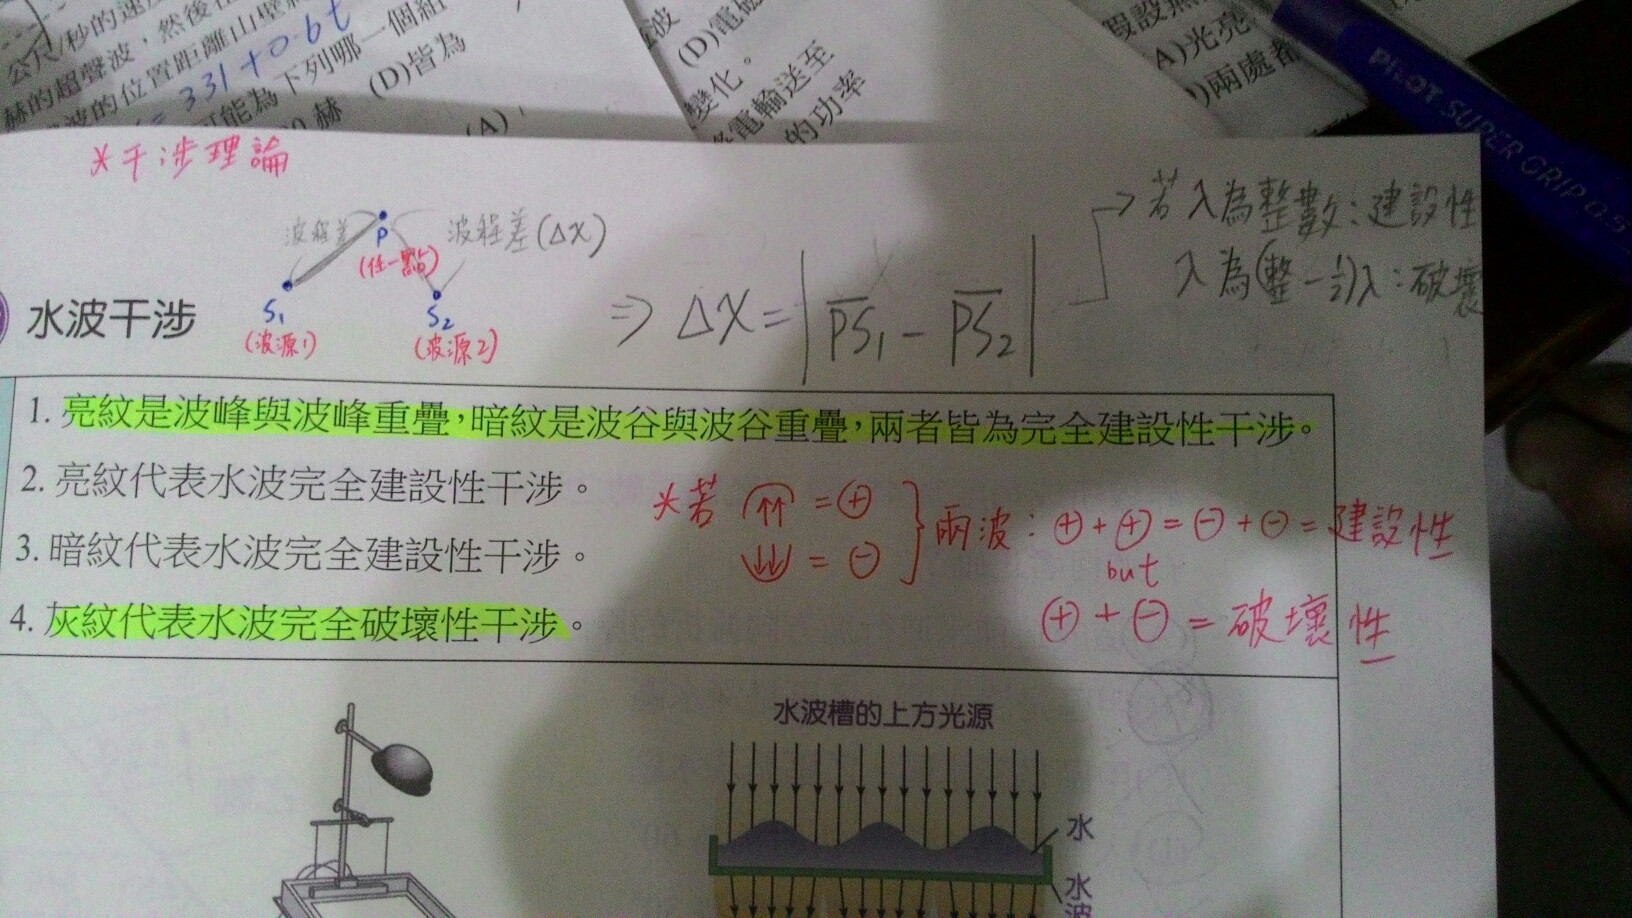 公尺/秒的速
的超聲波，然後在
波的位置距離山壁
331+0.6t
可能為下列哪一個組
赫 (D)皆為
(A)
波
(D)電磁
變化。
電輸送至
的功率
假設
A)光亮
)兩處都
PILOT SUPER GRIP 0.5
*干涉理論
波程差 P 波程差(ΔX)
(任一點)
S₁ S₂
(波源1) (波源2)
⇒ ΔX=|P̅S̅₁ - P̅S̅₂|
→若λ為整數:建設性
λ為(整-½)λ:破壞
水波干涉
1. 亮紋是波峰與波峰重疊，暗紋是波谷與波谷重疊，兩者皆為完全建設性干涉。
2. 亮紋代表水波完全建設性干涉。
3. 暗紋代表水波完全建設性干涉。
4. 灰紋代表水波完全破壞性干涉。
*若 ↑↑ = ⊕
↓↓ = ⊖
} 兩波: ⊕+⊕=⊖+⊖=建設性
but
⊕+⊖=破壞性
水波槽的上方光源
水
水波